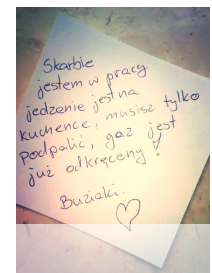 Skarbie
jestem w pracy
jedzenie jest na
kuchence, musisz tylko
podpalić, gaz jest
już odkręcony!
Buziaki.